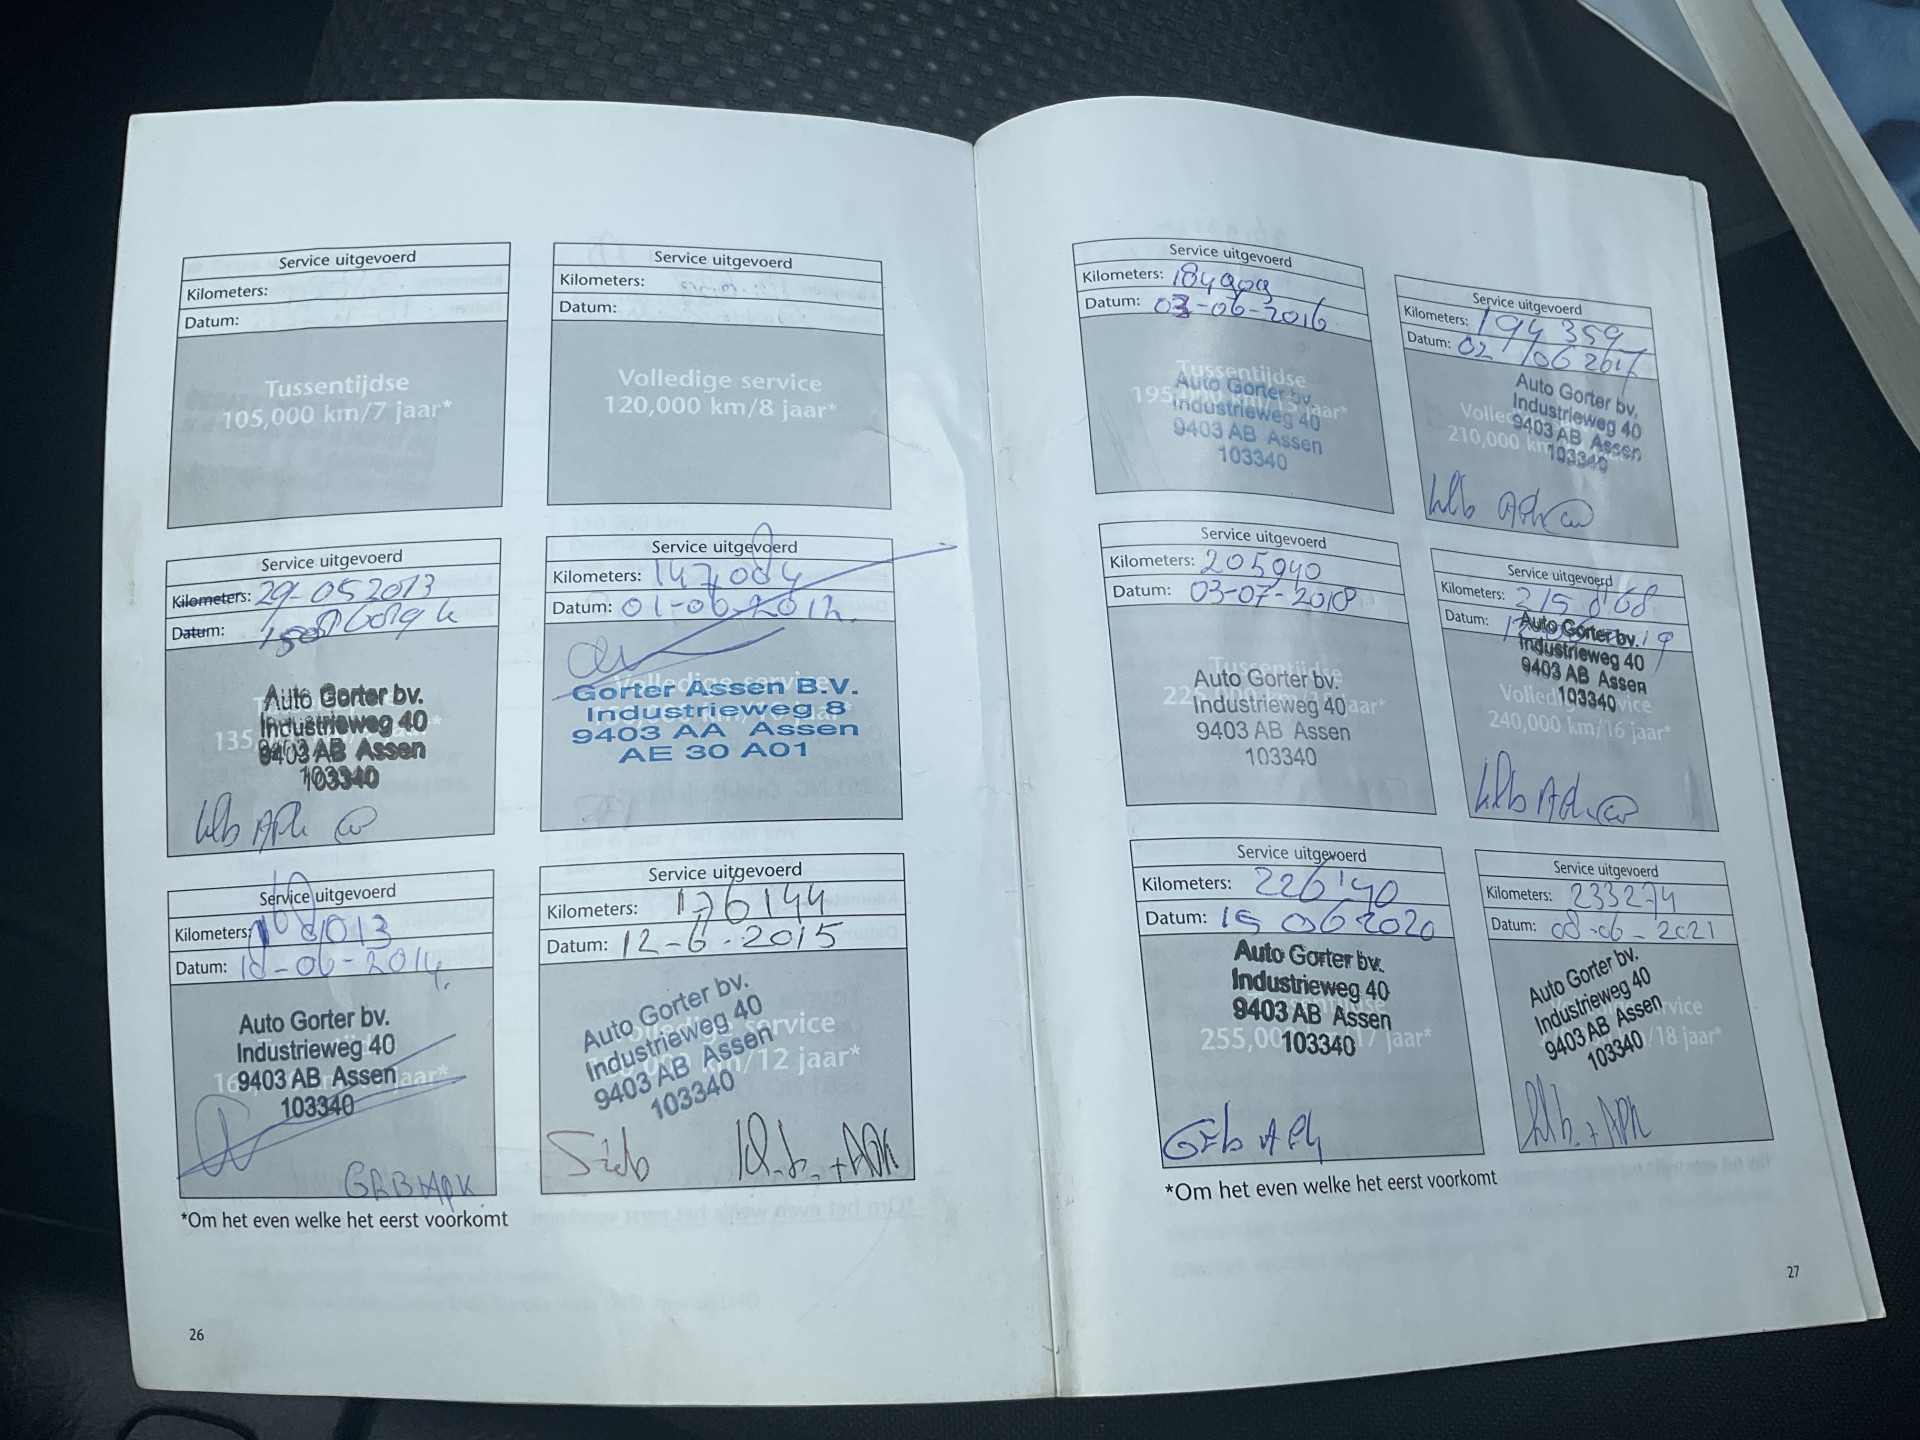 Service uitgevoerd
Kilometers:
Datum:
Tussentijdse
105,000 km/7 jaar*
Service uitgevoerd
Kilometers:
Datum:
Volledige service
120,000 km/8 jaar*
Service uitgevoerd
Kilometers: 29-05 2013
Datum:
135
Auto Gorter bv.
Industrieweg 40
9403 AB Assen
103340
Service uitgevoerd
Kilometers: 147,084
Datum: 01-06-2012.
Volledige service
Gorter Assen B.V.
Industrieweg 8
9403 AA Assen
AE 30 A01
Service uitgevoerd
Kilometers: 168013
Datum: 18-06-2014.
Auto Gorter bv.
Industrieweg 40
9403 AB Assen
103340
jaar*
Service uitgevoerd
Kilometers: 176144
Datum: 12-6-2015
Volledige service
km/12 jaar*
Auto Gorter bv.
Industrieweg 40
9403 AB Assen
103340
*Om het even welke het eerst voorkomt
26
Service uitgevoerd
Kilometers: 184909
Datum: 03-06-2016
Tussentijdse
195, jaar*
Auto Gorter bv.
Industrieweg 40
9403 AB Assen
103340
Service uitgevoerd
Kilometers: 194 359
Datum: 02 /06 2017
210,000 km
Auto Gorter bv.
Industrieweg 40
9403 AB Assen
103340
Service uitgevoerd
Kilometers: 205940
Datum: 03-07-2018
Tussentijdse
225, jaar*
Auto Gorter bv.
Industrieweg 40
9403 AB Assen
103340
Service uitgevoerd
Kilometers: 215 868
Datum: 19
Auto Gorter bv.
Industrieweg 40
9403 AB Assen
103340
240,000 km/16 jaar*
Service uitgevoerd
Kilometers: 226'40
Datum: 15 06 2020
Auto Gorter bv.
Industrieweg 40
9403 AB Assen
103340
255,000 /17 jaar*
Service uitgevoerd
Kilometers: 233274
Datum: 08-06-2021
Auto Gorter bv.
Industrieweg 40
9403 AB Assen
103340
service
/18 jaar*
*Om het even welke het eerst voorkomt
27